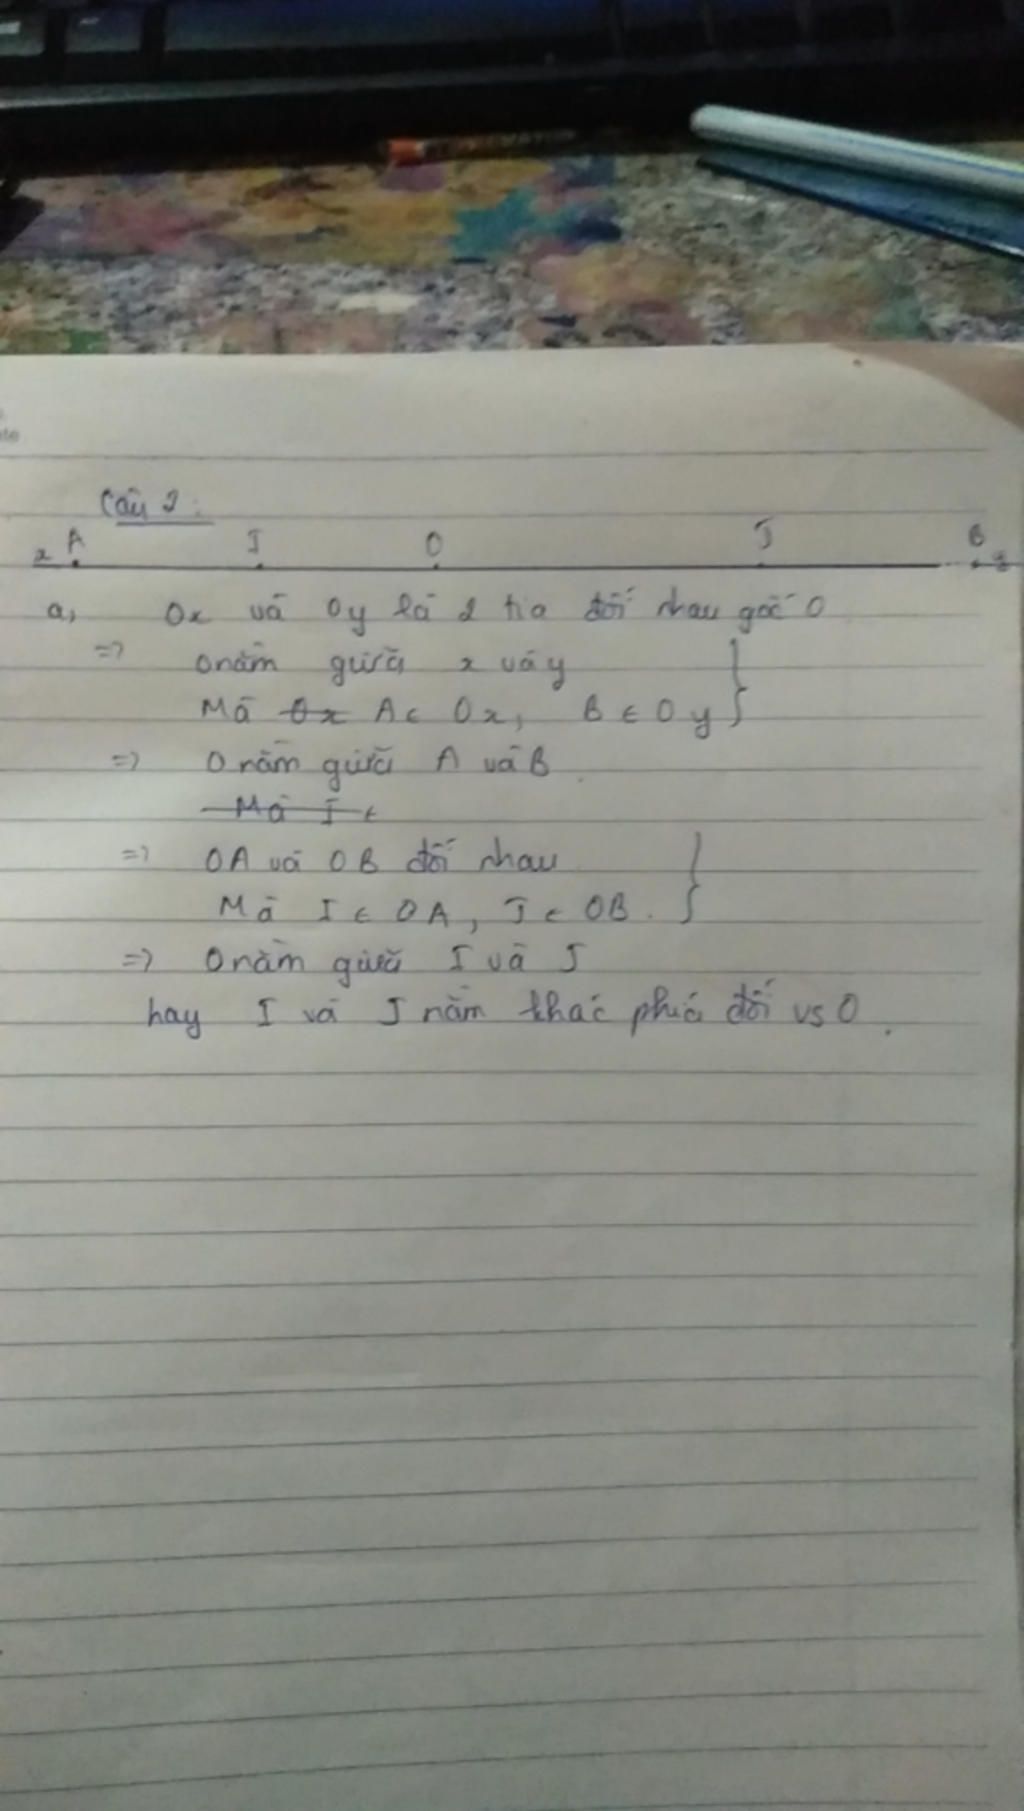 Câu 2:
x A I O J B y
a, Ox và Oy là 2 tia đối nhau gốc O
=> O nằm giữa x và y
Mà Ox A ∈ Ox, B ∈ Oy }
=> O nằm giữa A và B
Mà I ∈
=> OA và OB đối nhau
Mà I ∈ OA, J ∈ OB. }
=> O nằm giữa I và J
hay I và J nằm khác phía đối vs O.